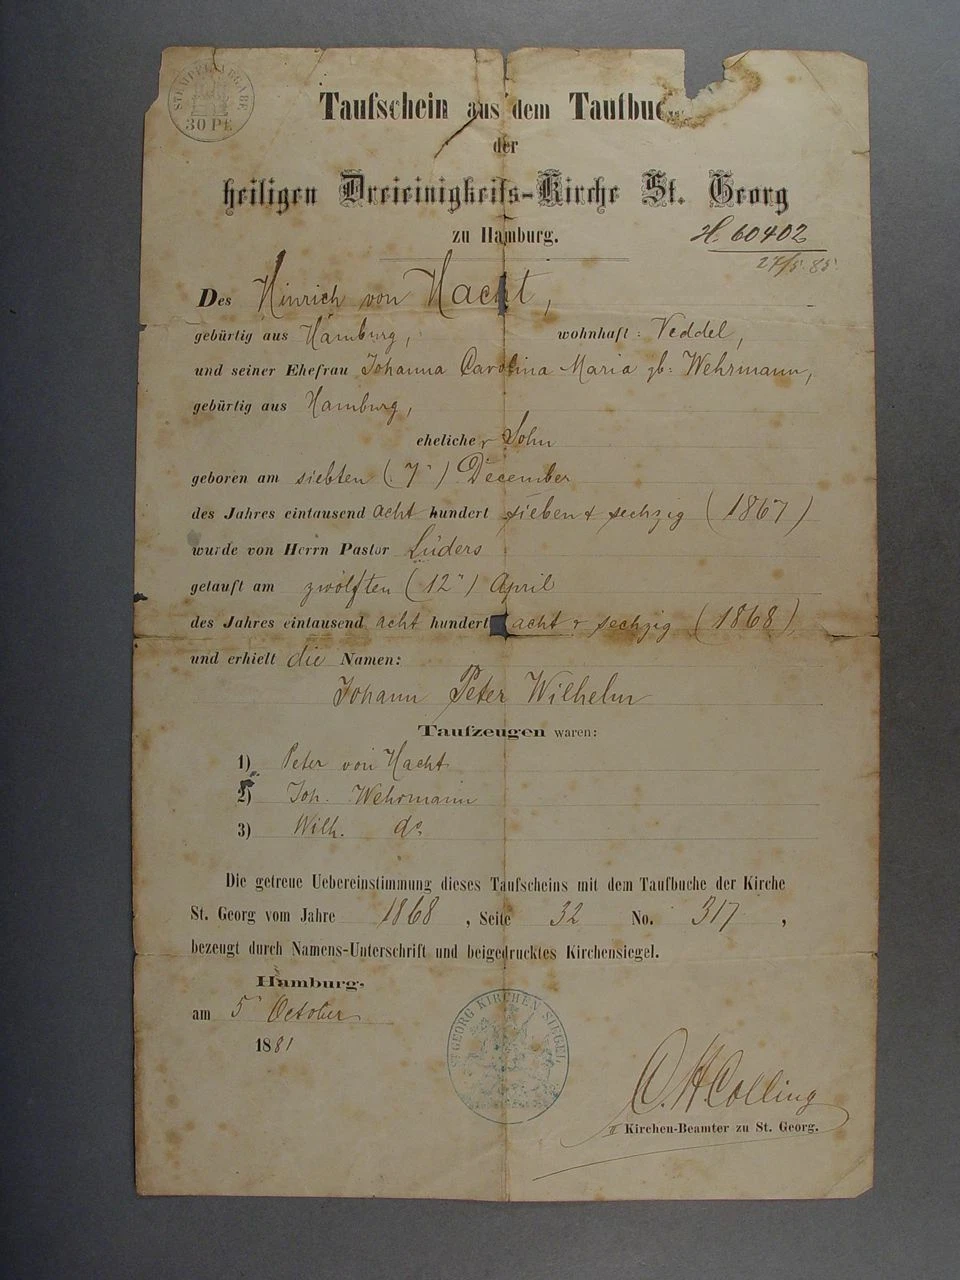 STEMPELABGABE
30 Pf.
Taufschein aus dem Taufbuc
der
heiligen Dreieinigkeits-Kirche St. Georg
zu Hamburg.
H. 60402
27/5. 85.
Des Hinrich von Hacht,
gebürtig aus Hamburg, wohnhaft: Veddel,
und seiner Ehefrau Johanna Carolina Maria gb: Wehrmann,
gebürtig aus Hamburg,
ehelicher Sohn
geboren am siebten (7") December
des Jahres eintausend acht hundert sieben & sechzig (1867)
wurde von Herrn Pastor Lüders
getauft am zwölften (12") April
des Jahres eintausend acht hundert acht & sechzig (1868)
und erhielt die Namen:
Johann Peter Wilhelm
Taufzeugen waren:
1) Peter von Hacht
2) Joh. Wehrmann
3) Wilh. do
Die getreue Uebereinstimmung dieses Taufscheins mit dem Taufbuche der Kirche
St. Georg vom Jahre 1868, Seite 32 No. 317,
bezeugt durch Namens-Unterschrift und beigedrucktes Kirchensiegel.
Hamburg,
am 5" October
1881
ST GEORG KIRCHEN SIEGEL
O. H. Colling
Kirchen-Beamter zu St. Georg.